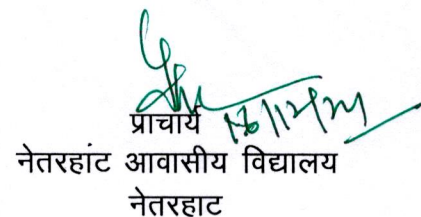 प्राचार्य
नेतरहांट आवासीय विद्यालय
नेतरहाट